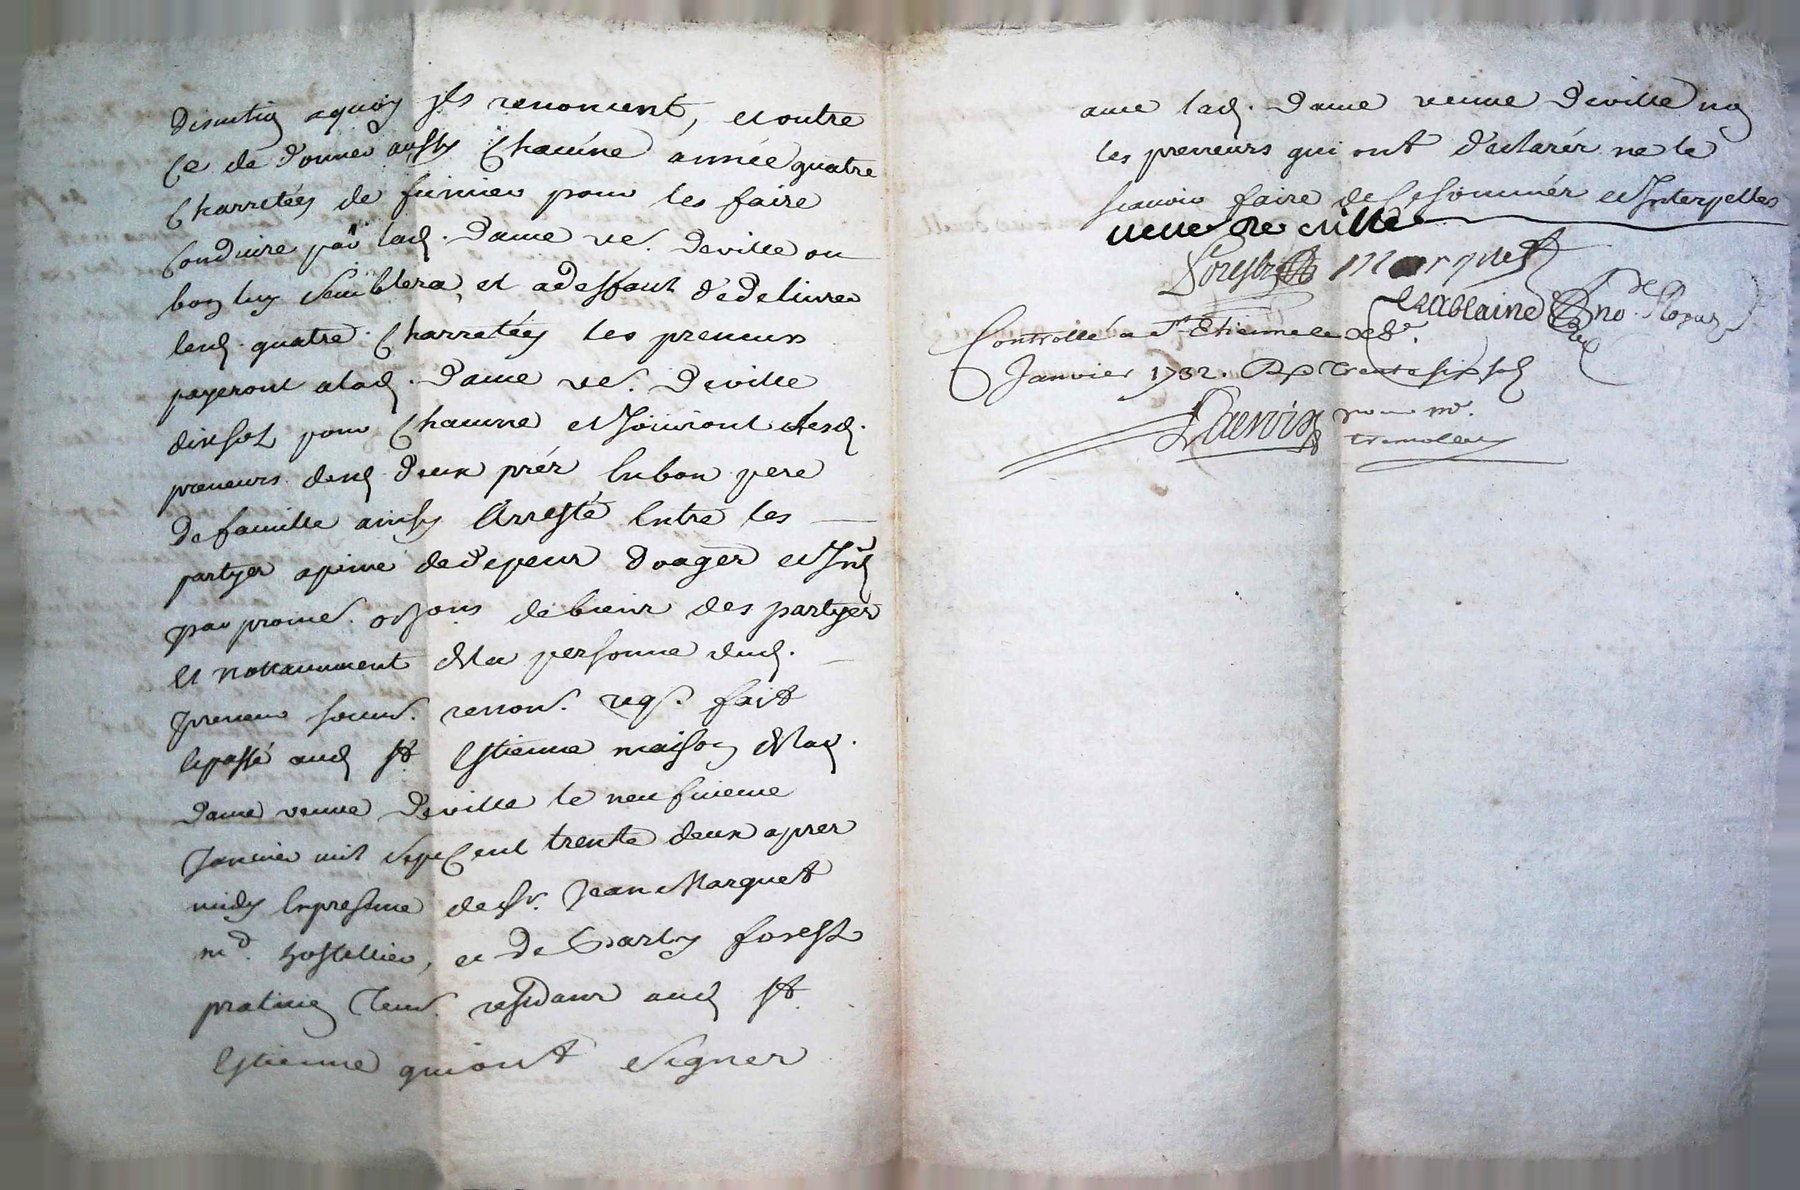 discution aquoy jls renoncent, et outre
ce de donner aussy chacune année quatre
charretées de fumier pour les faire
conduire par lad. dame ve. deville ou
bon luy semblera, et adeffaut dedelivrer
lesd. quatre charretées les preneurs
payeront alad. dame ve. deville
dixsol pour chacune et jouiront lesd.
preneurs desd. deux préz en bon pere
de famille ainsy arresté entre les
partyes apeine de depens domages et jnts
par promes. obons de biens des partyes
et nottamment de la personne dud.
preneur soums. renon. reqs. fait
et passé aud. st. estienne maison de lad.
dame veuve deville le neufvieme
janvier mil sept cent trente deux apres
midy en presence de sr. jean marquet
md. hostellier, et de barly forest
praticien tem. residans aud. st.
estienne qui ont signer
avec lad. dame veuve deville non
les preneurs qui ont declarér ne le
scavoir faire de ce sommér et interpellés
veuve de ville
forest marquet
chablaine no. Roual
Controllé a st. Etienne le xe
Janvier 1732. Rx trente six sols
pour mr.
tremolleu